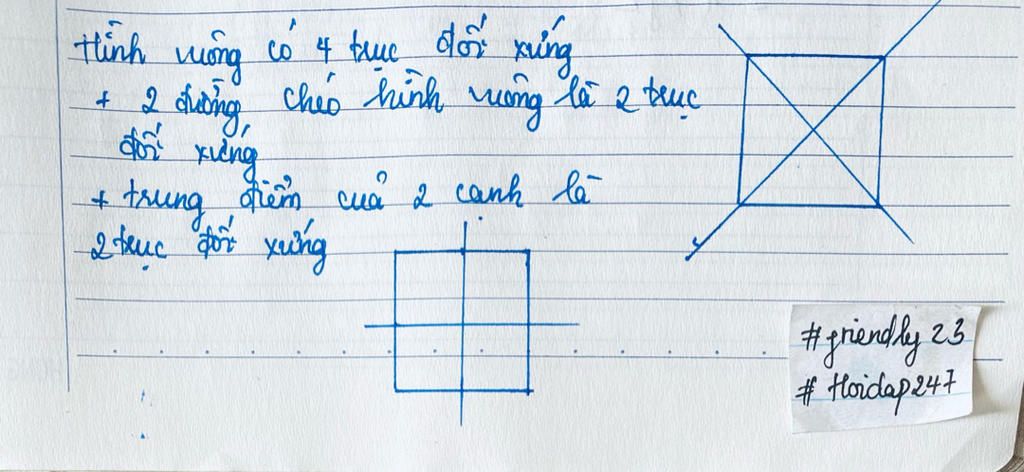 Hình vuông có 4 trục đối xứng
+ 2 đường chéo hình vuông là 2 trục
đối xứng
+ trung điểm cuả 2 cạnh là
2 trục đối xứng
#friendly 23
# Hoidap247